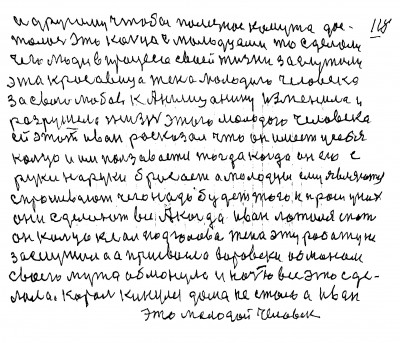 и другому чтобы полезное кому та дос- 118
талося это кольца с молодцами то сделали
чего люди в процесе своей жизни заслужили
эта красавица жена молодого человека
за свою любовь к Англицанину изменила и
разрушила жизнь этого молодого человека
ей этот иван росказал что он имеет у себя
кольцо и им ползавается тогда когда он его с
руки на руки бросает а молодцы ему являются
спрошивают чего надь будет того и проси у них
они сделают все А когда иван ложился спать
он кольцо клал под голова жена эту работу не
заслужила а привыкла воровски обманом
своего мужа обманула и ночью все это сде-
лала. Королю кинули дома не стало а иван
это молодой человек